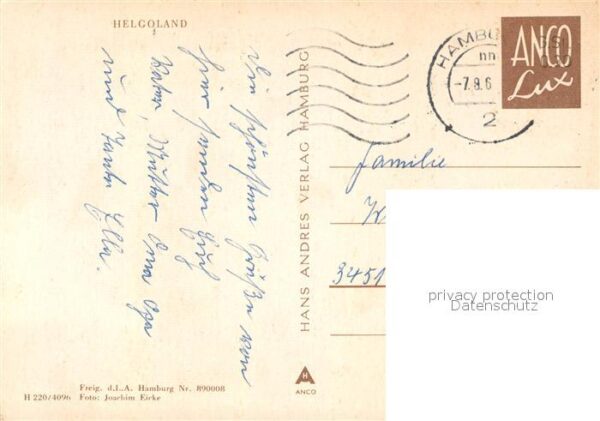 HELGOLAND
Die schönsten Grüße von
hier senden Euch
Vater, Mutter Oma Opa
und Tante Ella.
Freig. d.L.A. Hamburg Nr. 890008
H 220/4096 Foto: Joachim Eicke
HANS ANDRES VERLAG HAMBURG
H
ANCO
HAMBU
nn
-7.8.6
2
ANCO
Lux
Familie
W
3451
privacy protection
Datenschutz